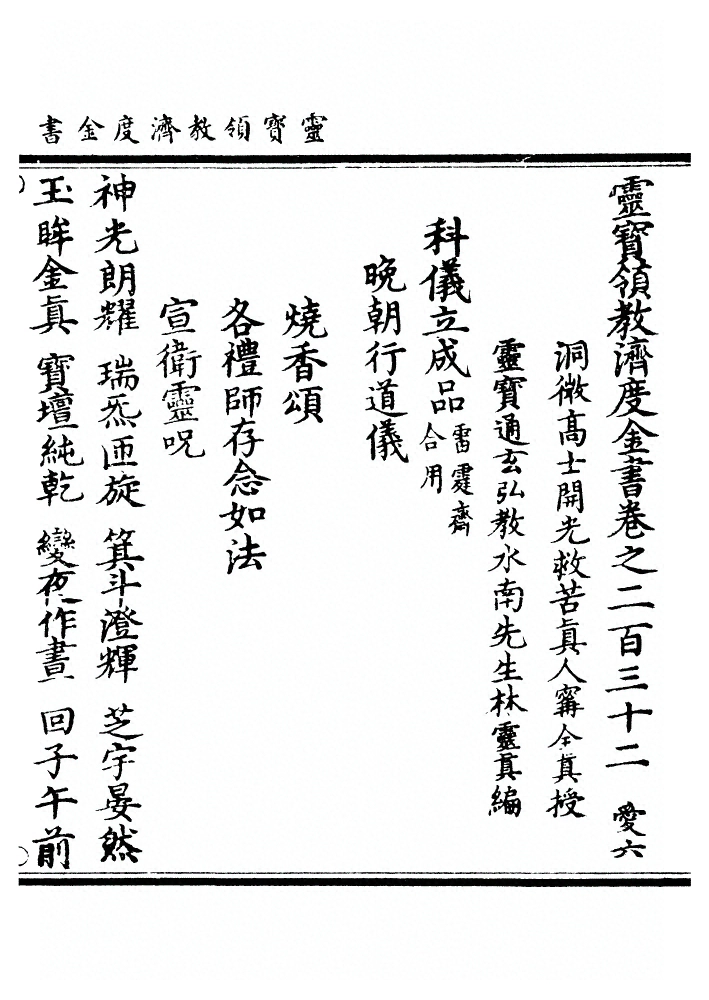 靈寶領教濟度金書
靈寶領教濟度金書卷之二百三十二 愛六
洞微高士開光救苦眞人甯全眞授
靈寶通玄弘教水南先生林靈眞編
科儀立成品 雷霆齋合用
晚朝行道儀
燒香頌
各禮師存念如法
宣衛靈呪
神光朗耀 瑞炁匝旋 箕斗澄輝 芝宇晏然
玉眸金眞 寶壇純乾 變夜作晝 回子午前